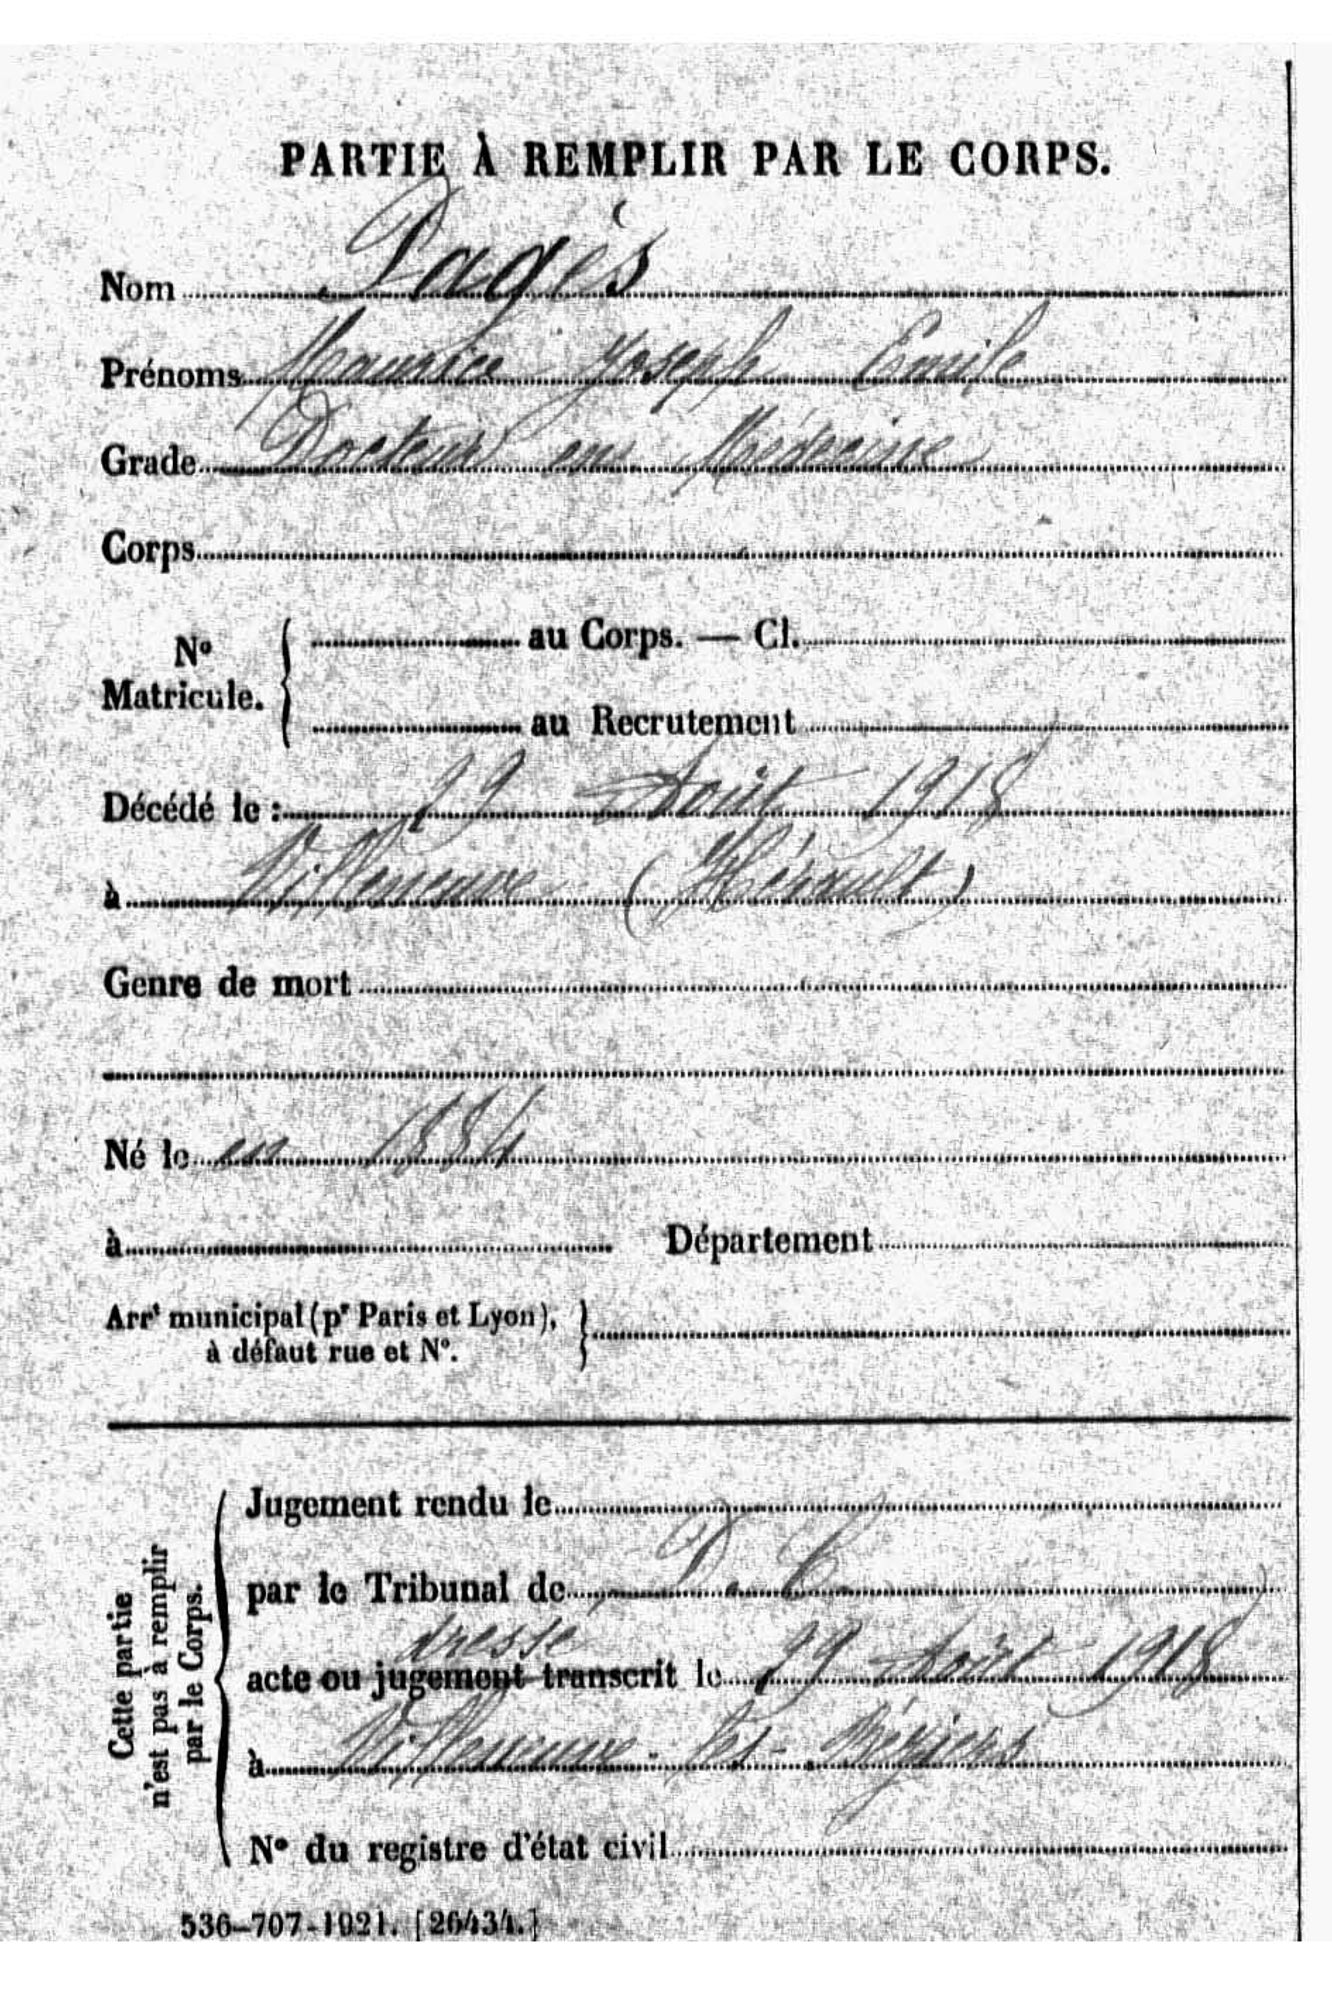 PARTIE À REMPLIR PAR LE CORPS.
Nom Pagès
Prénoms Maurice Joseph Emile
Grade Docteur en Médecine
Corps
N° Matricule. { au Corps. — Cl.
au Recrutement
Décédé le : 29 Août 1918
à Villeneuve (Hérault)
Genre de mort
Né le en 1884
à Département
Arrt municipal (pr Paris et Lyon), }
à défaut rue et N°.
Cette partie
n'est pas à remplir
par le Corps.
Jugement rendu le
par le Tribunal de D. C.
dressé
acte ou jugement transcrit le 29 Août 1918
à Villeneuve-les-Béziers
N° du registre d'état civil
536-707-1921. [26434.]